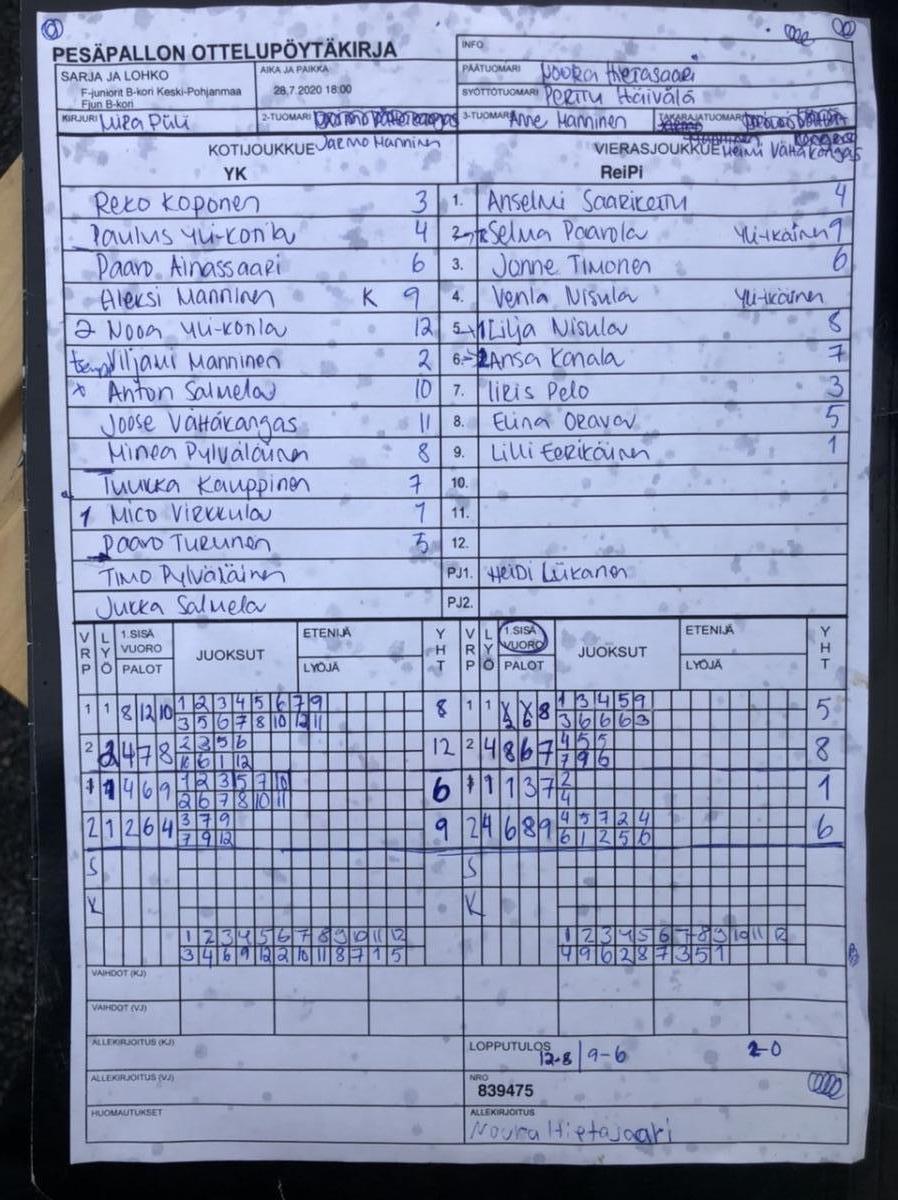 PESÄPALLON OTTELUPÖYTÄKIRJA
INFO
SARJA JA LOHKO
F-juniorit B-kori Keski-Pohjanmaa
Fjun B-kori
AIKA JA PAIKKA
28.7.2020 18:00
PÄÄTUOMARI Noora Hietasaari
SYÖTTÖTUOMARI Perttu Häivälä
KIRJURI Mira Püli
2-TUOMARI Jarmo Manninen
3-TUOMARI Anne Manninen
TAKARAJATUOMARI Heini Vähäkangas
KOTIJOUKKUE
YK
VIERASJOUKKUE
ReiPi
Reko Koponen 3 1. Anselmi 4
Paulus Yli-Korila 4 2. Selma Paarola Yli-ikäinen 9
Paaro Ainassaari 6 3. Jonne Timonen 6
Aleksi Manninen K 9 4. Venla Nisula Yli-ikäinen
2 Nooa Yli-Korila 12 5. 1 Lilja Nisula 8
Viljami Manninen 2 6. 2 Ansa Kanala 7
Anton Salmela 10 7. Iiris Pelo 3
Joose Vähäkangas 11 8. Elina Orava 5
Minea Pylväläinen 8 9. Lilli Eerikäinen 1
Tuukka Kauppinen 7 10.
1 Mico Virkkula 1 11.
Paavo Turunen 5 12.
Timo Pylväläinen PJ1. Heidi Liikanen
Jukka Salmela PJ2.
VRP LYÖ 1.SISÄ VUORO PALOT JUOKSUT ETENIJÄ LYÖJÄ YHT VRP LYÖ 1.SISÄ VUORO PALOT JUOKSUT ETENIJÄ LYÖJÄ YHT
1 1 8 12 10 1 2 3 4 5 6 7 9 8 1 1 X X 8 1 3 4 5 9 5
3 5 6 7 8 10 12 11 2 6 3 6 6 6 3
2 2 4 7 8 2 3 5 6 12 2 4 8 6 7 4 5 5 8
10 6 1 12 7 9 6
1 1 4 6 9 1 2 3 5 7 10 6 1 1 1 3 7 2 1
2 6 7 8 10 11 4
2 1 2 6 4 3 7 9 9 2 4 6 8 9 4 5 7 2 4 6
7 9 12 6 1 2 5 6
S S
K K
1 2 3 4 5 6 7 8 9 10 11 12 1 2 3 4 5 6 7 8 9 10 11 12
3 4 6 9 12 2 10 11 8 7 1 5 4 9 6 2 8 7 3 5 1
VAIHDOT (KJ)
VAIHDOT (VJ)
ALLEKIRJOITUS (KJ)
LOPPUTULOS
12-8 / 9-6 2-0
ALLEKIRJOITUS (VJ)
NRO
839475
HUOMAUTUKSET
ALLEKIRJOITUS
Noora Hietasaari